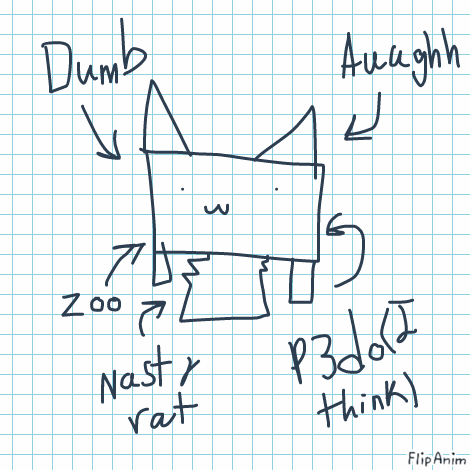 Dumb
Auaghh
w
zoo
Nasty
rat
P3do(I
think)
FlipAnim